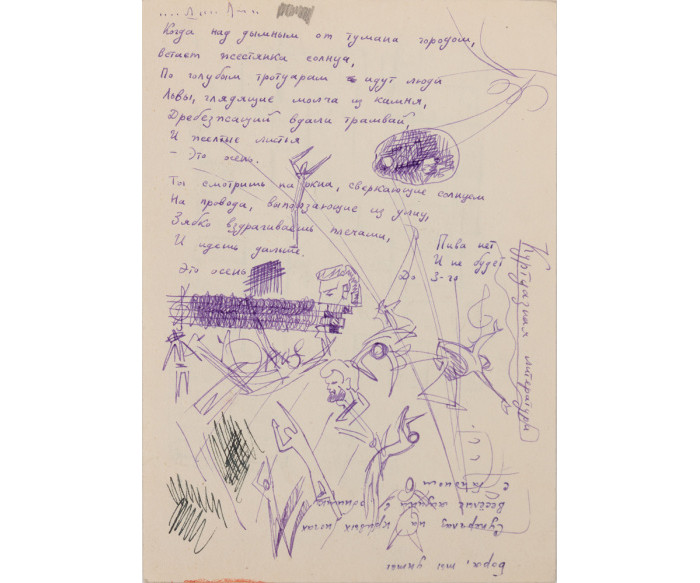 Когда над дымным от тумана городом,
встает жестянка солнца,
По голубым тротуарам идут люди
Львы, глядящие молча из камня,
Дребезжащий вдали трамвай,
И желтые листья
- Это осень.
Ты смотришь на окна, сверкающие солнцем
На провода, выползающие из улиц,
Зябко вздрагиваешь плечами,
И идешь дальше.
Это осень
Пива нет
И не будет
До 3-го
литература
на кривых ногах
Весёлые
с